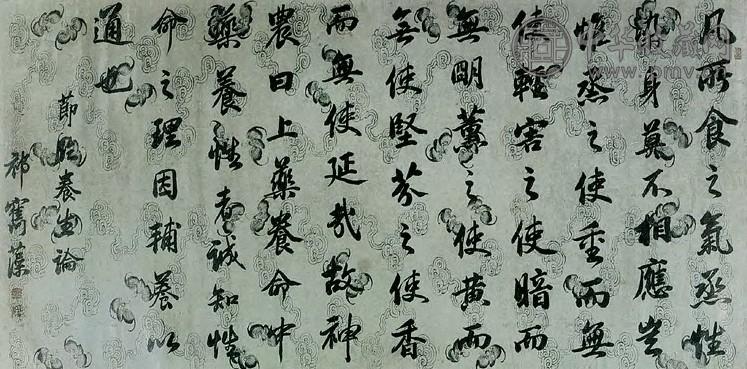 凡所食之氣烝性
染身莫不相應豈
惟蒸之使重而無
使輕害之使暗而
無明薰之使黃而
無使堅芬之使香
而無使延哉故神
農曰上藥養命中
藥養性者誠知性
命之理因輔養以
通也
節臨養生論
祁寯藻